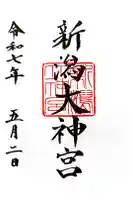 新潟大神宮
令和七年 五月二日